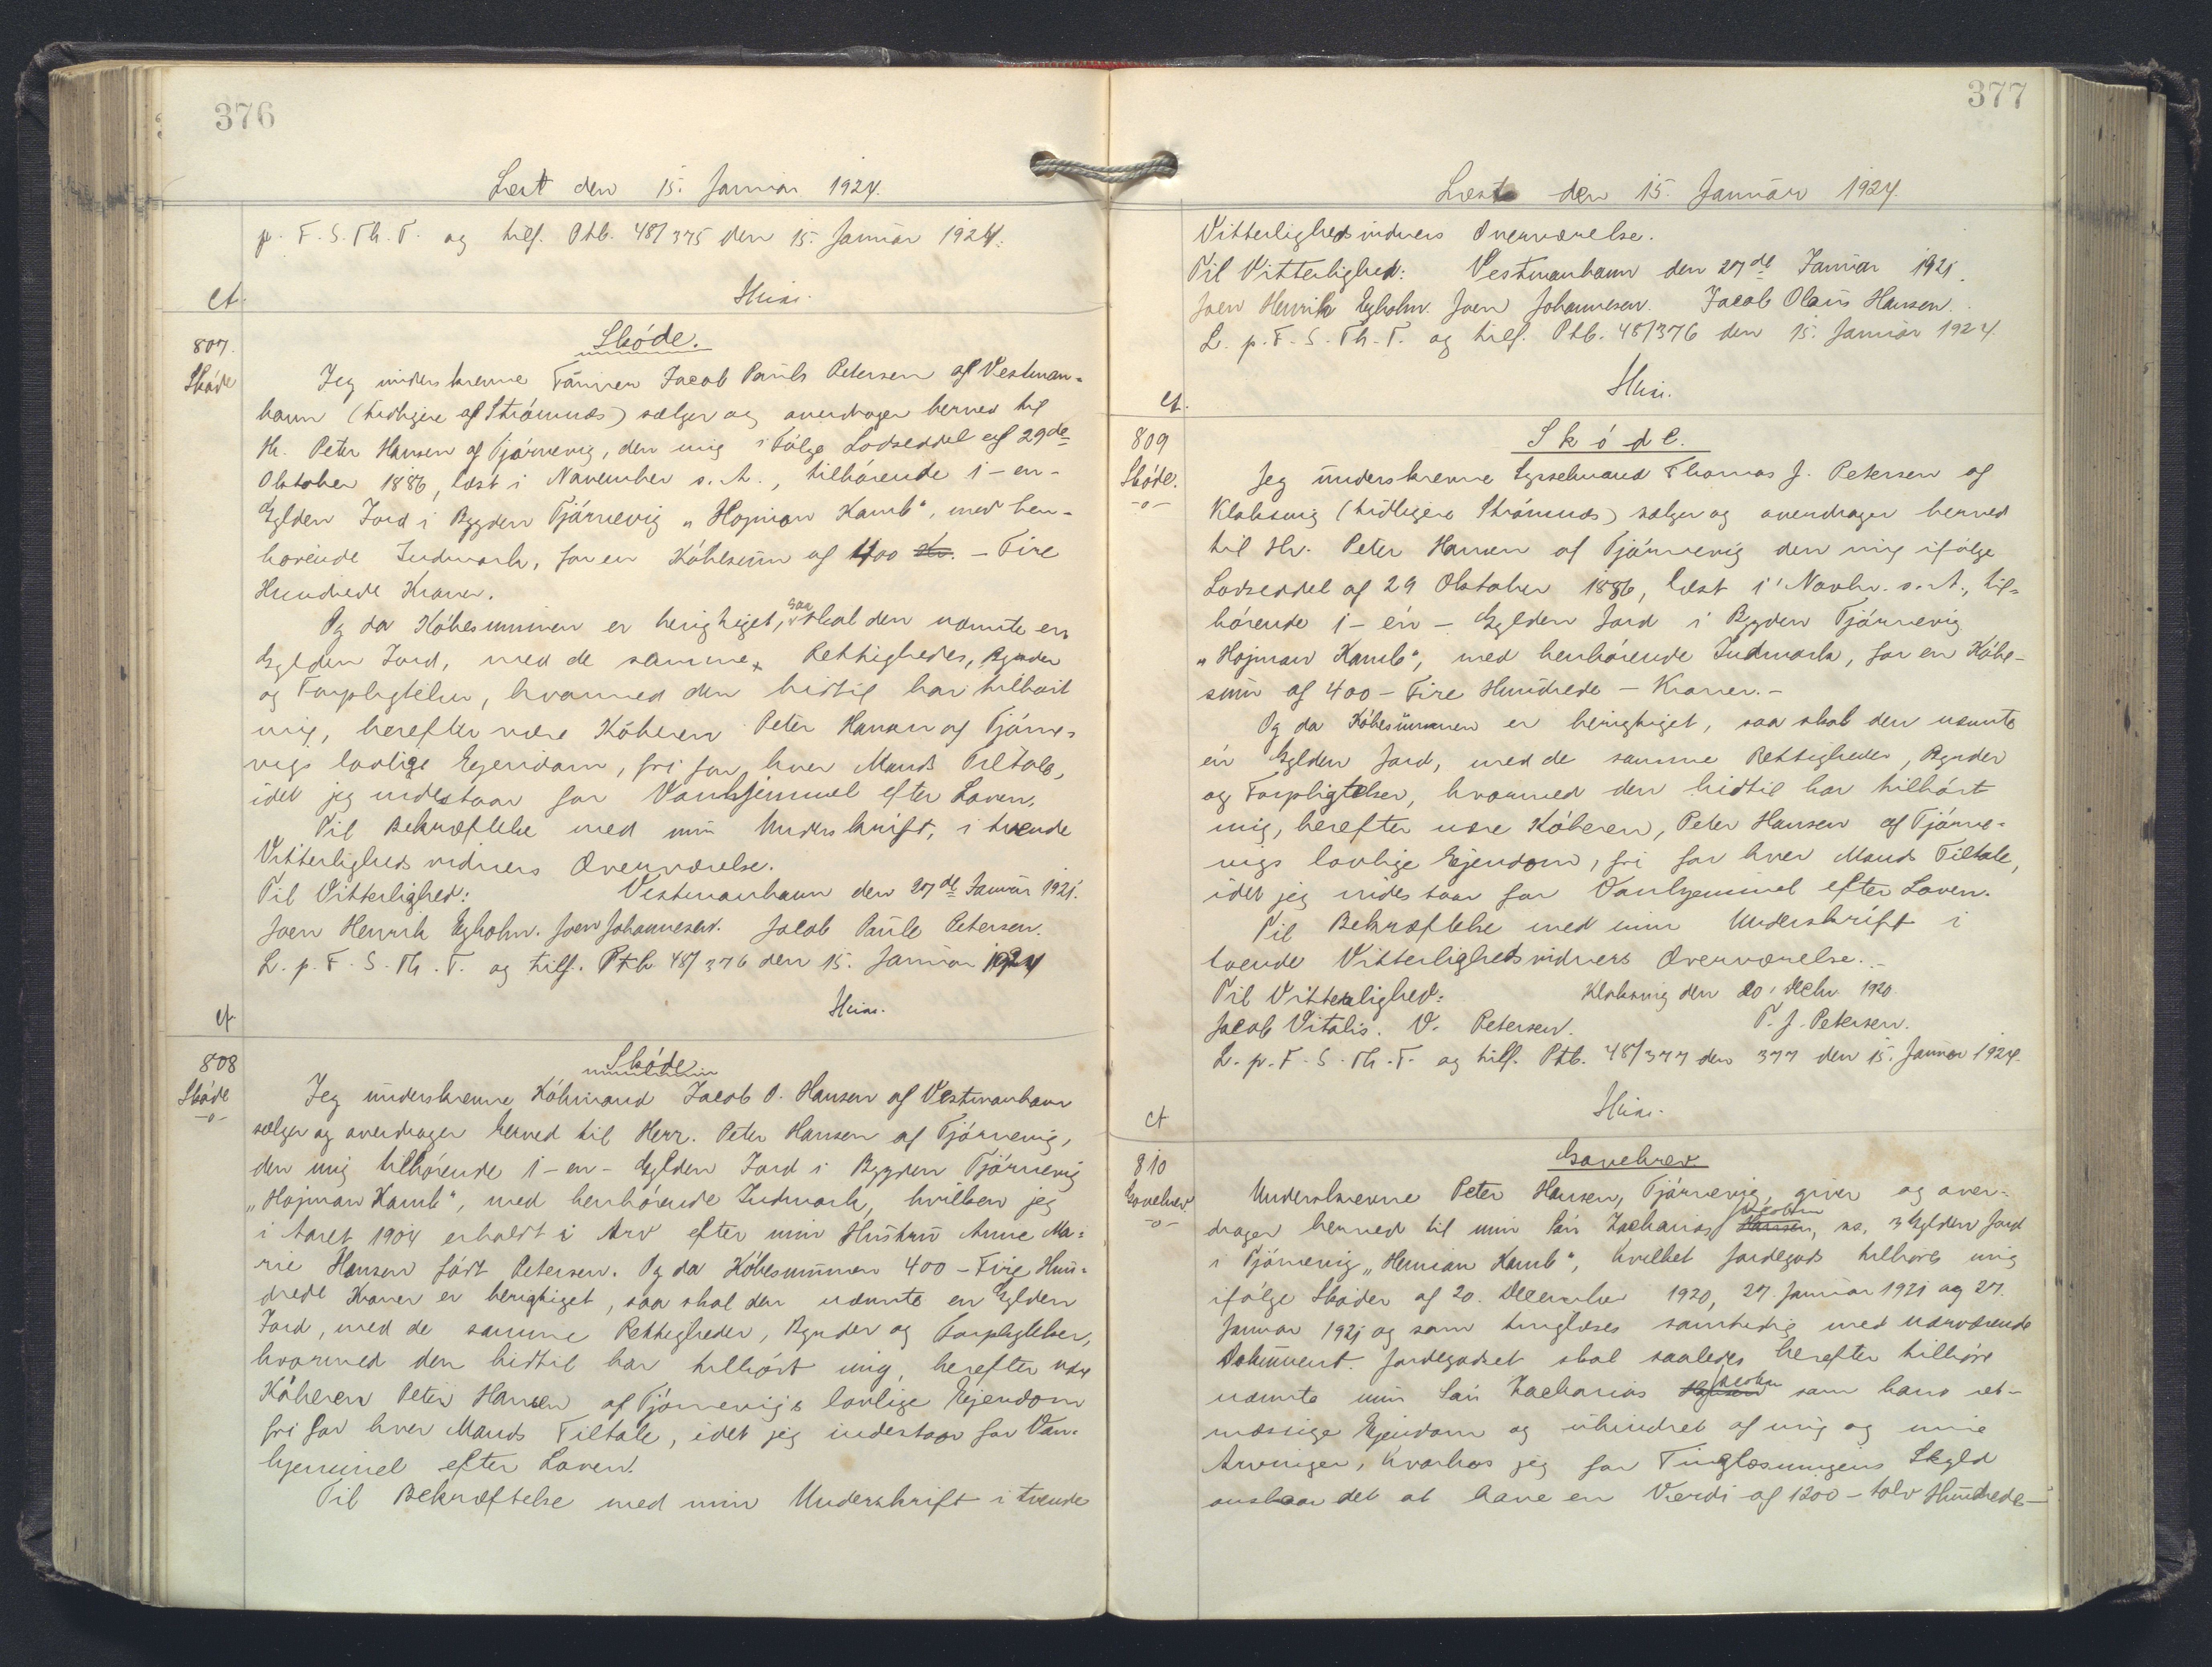 376
Læst den 15. Januar 1924.
p. F. S. Th. P. og tilf. Ptb. 48/375 den 15. Januar 1924.
ct.
807.
Skóde
Skóde.
Jeg underskrevne Jacob Pauls Petersen af Vestman-
havn (tidligere af Strömnæs) sælger og overdrager herved til
Hr. Peter Hansen af Tjörnevig, den mig i Fölge Lodseddel af 29de
Oktober 1886, læst i November s. A., tilhörende 1 - en -
Gylden Jord i Bygden Tjörnevig „Hojman Kamb“, med hen-
hörende Indmark, for en Köbesum af 400 Kr. - Fire
Hundrede Kroner.
Og da Köbesummen er berigtiget, saa skal den nævnte en
Gylden Jord, med de samme Rettigheder, Byrder
og Forpligtelser, hvormed den hidtil har tilhört
mig, herefter være Köberen Peter Hansen af Tjörne-
vigs lovlige Ejendom, fri for hver Mands Tiltale,
idet jeg indestaar for Vanhjemmel efter Loven.
Til Bekræftelse med min Underskrift, i tvende
Vitterligheds vidners Overværelse.
Til Vitterlighed: Vestmanhavn den 27de Januar 1921.
Joen Henrik Egholm. Joen Johannesen. Jacob Paule Petersen.
L. p. F. S. Th. P. og tilf. Ptb 48/376 den 15. Januar 1924
ct.
808
Skóde
-o-
Skóde
Jeg underskrevne Köbmand Jacob O. Hansen af Vestmanhavn
sælger og overdrager herved til Herr. Peter Hansen af Tjörnevig,
den mig tilhörende 1 - en - Gylden Jord i Bygden Tjörnevig
„Hojman Kamb“, med henhörende Indmark, hvilken jeg
i Aaret 1904 erholdt i Arv efter min Hustru Anne Ma-
rie Hansen födt Petersen. Og da Köbesummen 400 - Fire Hun-
drede Kroner er berigtiget, saa skal den nævnte en Gylden
Jord, med de samme Rettigheder, Byrder og Forpligtelser,
hvormed den hidtil har tilhört mig, herefter være
Köberen Peter Hansen af Tjörnevigs lovlige Ejendom
fri for hver Mands Tiltale, idet jeg indestaar for Van-
hjemmel efter Loven.
Til Bekræftelse med min Underskrift i tvende
377
Læst den 15. Januar 1924.
Vitterligheds vidners Overværelse.
Til Vitterlighed: Vestmanhavn den 27de Januar 1921.
Joen Henrik Egholm. Joen Johannesen. Jacob Olaus Hansen.
L. p. F. S. Th. P. og tilf. Ptb. 48/376 den 15. Januar 1924
ct.
809
Skóde.
-o-
Skóde.
Jeg underskrevne Sysselmand Thomas J. Petersen af
Klaksvig (tidligere Strömnæs) sælger og overdrager herved
til Hr. Peter Hansen af Tjörnevig den mig ifölge
Lodseddel af 29 Oktober 1886, læst i Novbr. s. A., til-
hörende 1 - én - Gylden Jord i Bygden Tjörnevig
„Hojman Kamb“, med henhörende Indmark, for en Köbe-
sum af 400 - Fire Hundrede - Kroner. -
Og da Köbesummen er berigtiget, saa skal den nævnte
én Gylden Jord, med de samme Rettigheder, Byrder
og Forpligtelser, hvormed den hidtil har tilhört
mig, herefter være Köberen, Peter Hansen af Tjörne-
vigs lovlige Ejendom, fri for hver Mands Tiltale,
idet jeg indestaar for Vanhjemmel efter Loven.
Til Bekræftelse med min Underskrift i
tvende Vitterligheds vidners Overværelse. -
Til Vitterlighed: Klaksvig den 20. Decbr. 1920.
Jacob Vitalis. V. Petersen. T. J. Petersen.
L. p. F. S. Th. P. og tilf. Ptb. 48/377 den 377 den 15. Januar 1924.
ct
810
Gavebrev
-o-
Gavebrev
Underskrevne Peter Hansen, Tjörnevig, giver og over-
drager herved til min Sön Zacharias Jacobsen Hansen, ss. 3 Gylden Jord
i Tjörnevig „Heman Kamb“, hvilket Jordegods tilhöres mig
ifölge Sköder af 20. December 1920, 27. Januar 1921 og 27.
Januar 1921 og som tinglæses samtidig med nærværende
Dokument. Jordegodset skal saaledes herefter tilhöre
nævnte min Sön Zacharias Hansen Jacobsen som hans ret-
mæssige Ejendom og uhindret af mig og mine
Arvinger, hvorhos jeg for Tinglæsningens Skyld
anslaar det at have en Værdi af 1200 - tolv Hundrede -